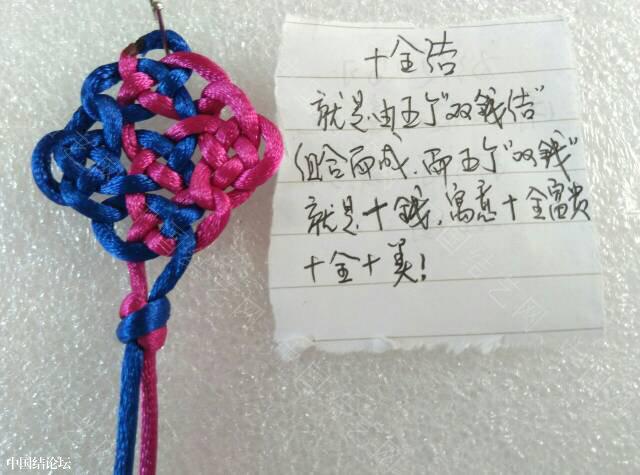 十全结
就是由五个“双钱结”
组合而成，而五个“双钱”
就是十钱，寓意十全富贵
十全十美！
中国结论坛